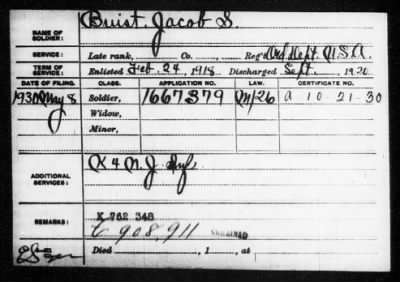 NAME OF SOLDIER: Buist, Jacob S.
SERVICE: Late rank, Co. Reg't Ord Dept. U.S.A.
TERM OF SERVICE: Enlisted Feb. 24, 1918 Discharged Sept. 1920
DATE OF FILING. CLASS. APPLICATION NO. LAW. CERTIFICATE NO.
1930 May 8 Soldier, 1667379 M/26 a 10-21-30
Widow,
Minor,
ADDITIONAL SERVICES: K 4 N.J. Inf
REMARKS: K 762 348
C 908,911
Died , 1 , at